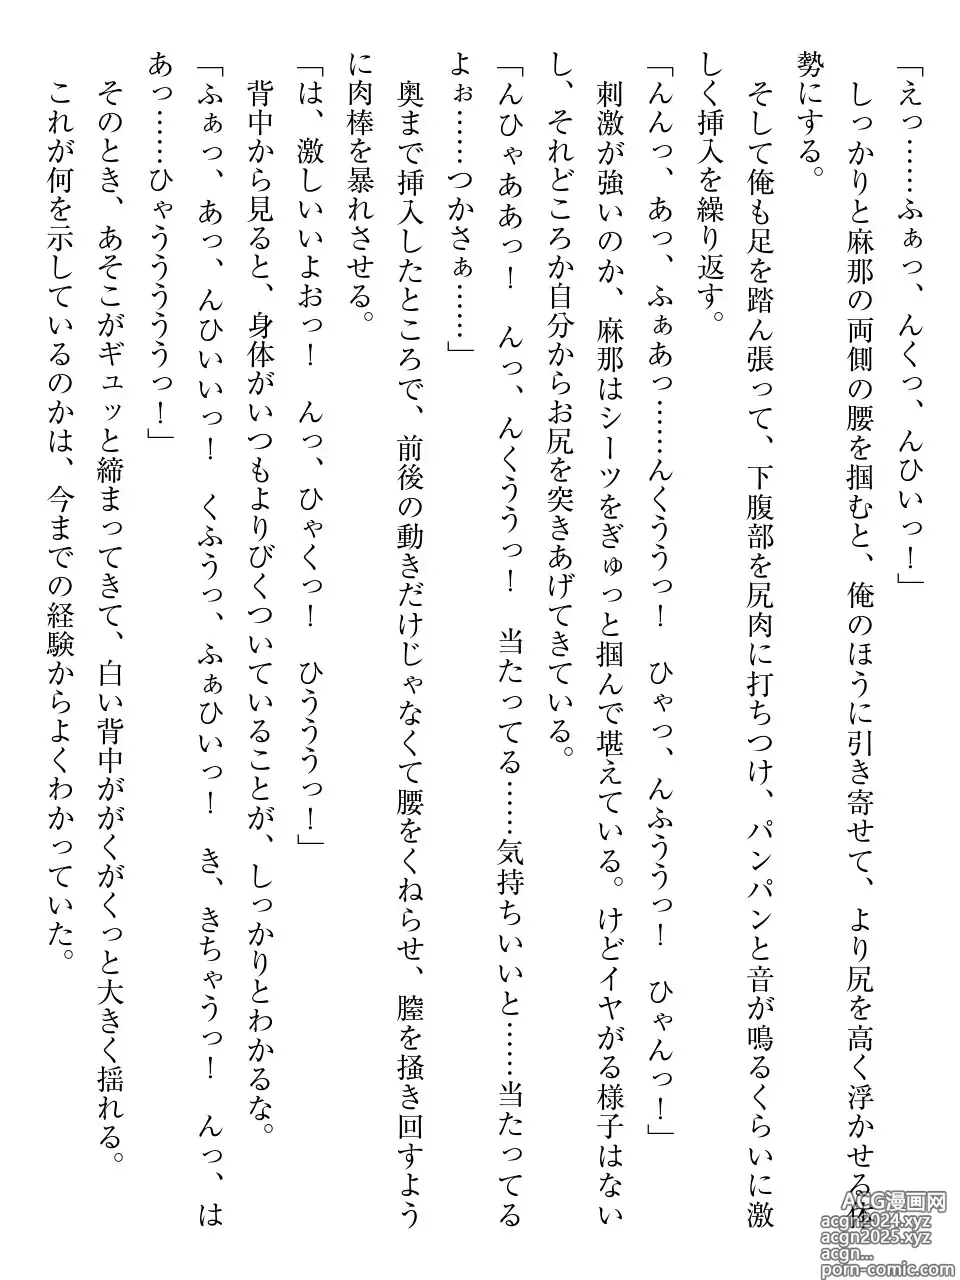 「えっ……ふぁっ、んくっ、んひいっ！」
　しっかりと麻那の両側の腰を掴むと、俺のほうに引き寄せて、より尻を高く浮かせる体
勢にする。
　そして俺も足を踏ん張って、下腹部を尻肉に打ちつけ、パンパンと音が鳴るくらいに激
しく挿入を繰り返す。
「んんっ、あっ、ふぁあっ……んくううっ！　ひゃっ、んふううっ！　ひゃんっ！」
　刺激が強いのか、麻那はシーツをぎゅっと掴んで堪えている。けどイヤがる様子はない
し、それどころか自分からお尻を突きあげてきている。
「んひゃああっ！　んっ、んくううっ！　当たってる……気持ちいいと……当たってる
よぉ……つかさぁ……」
　奥まで挿入したところで、前後の動きだけじゃなくて腰をくねらせ、膣を掻き回すよう
に肉棒を暴れさせる。
「は、激しいいよおっ！　んっ、ひゃくっ！　ひうううっ！」
　背中から見ると、身体がいつもよりびくついていることが、しっかりとわかるな。
「ふぁっ、あっ、んひいいっ！　くふうっ、ふぁひいっ！　き、きちゃうっ！　んっ、は
あっ……ひゃうううううっ！」
　そのとき、あそこがギュッと締まってきて、白い背中ががくがくっと大きく揺れる。
　これが何を示しているのかは、今までの経験からよくわかっていた。
ACG漫画网
acgn2024.xyz
acgn2025.xyz
acgn...
porn-comic.com